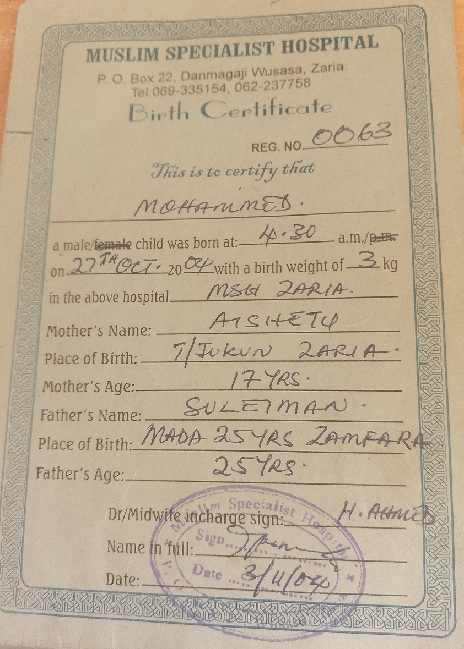 MUSLIM SPECIALIST HOSPITAL
P. O. Box 22, Danmagaji Wusasa, Zaria.
Tel:069-335154, 062-237758
Birth Certificate
REG. NO. 0063
This is to certify that
MOHAMMED.
a male/female child was born at: 4.30 a.m./p.m.
on 27TH OCT. 2004 with a birth weight of 3 kg
in the above hospital MSH ZARIA.
Mother's Name: AISHETU
Place of Birth: T/JUKUN ZARIA.
Mother's Age: 17YRS.
Father's Name: SULEIMAN.
Place of Birth: MADA 25YRS ZAMFARA
Father's Age: 25YRS.
Dr/Midwife incharge sign: H. AHMED
Muslim Specialist Hospital
Name in full: Sign
Date: Date 3/11/04